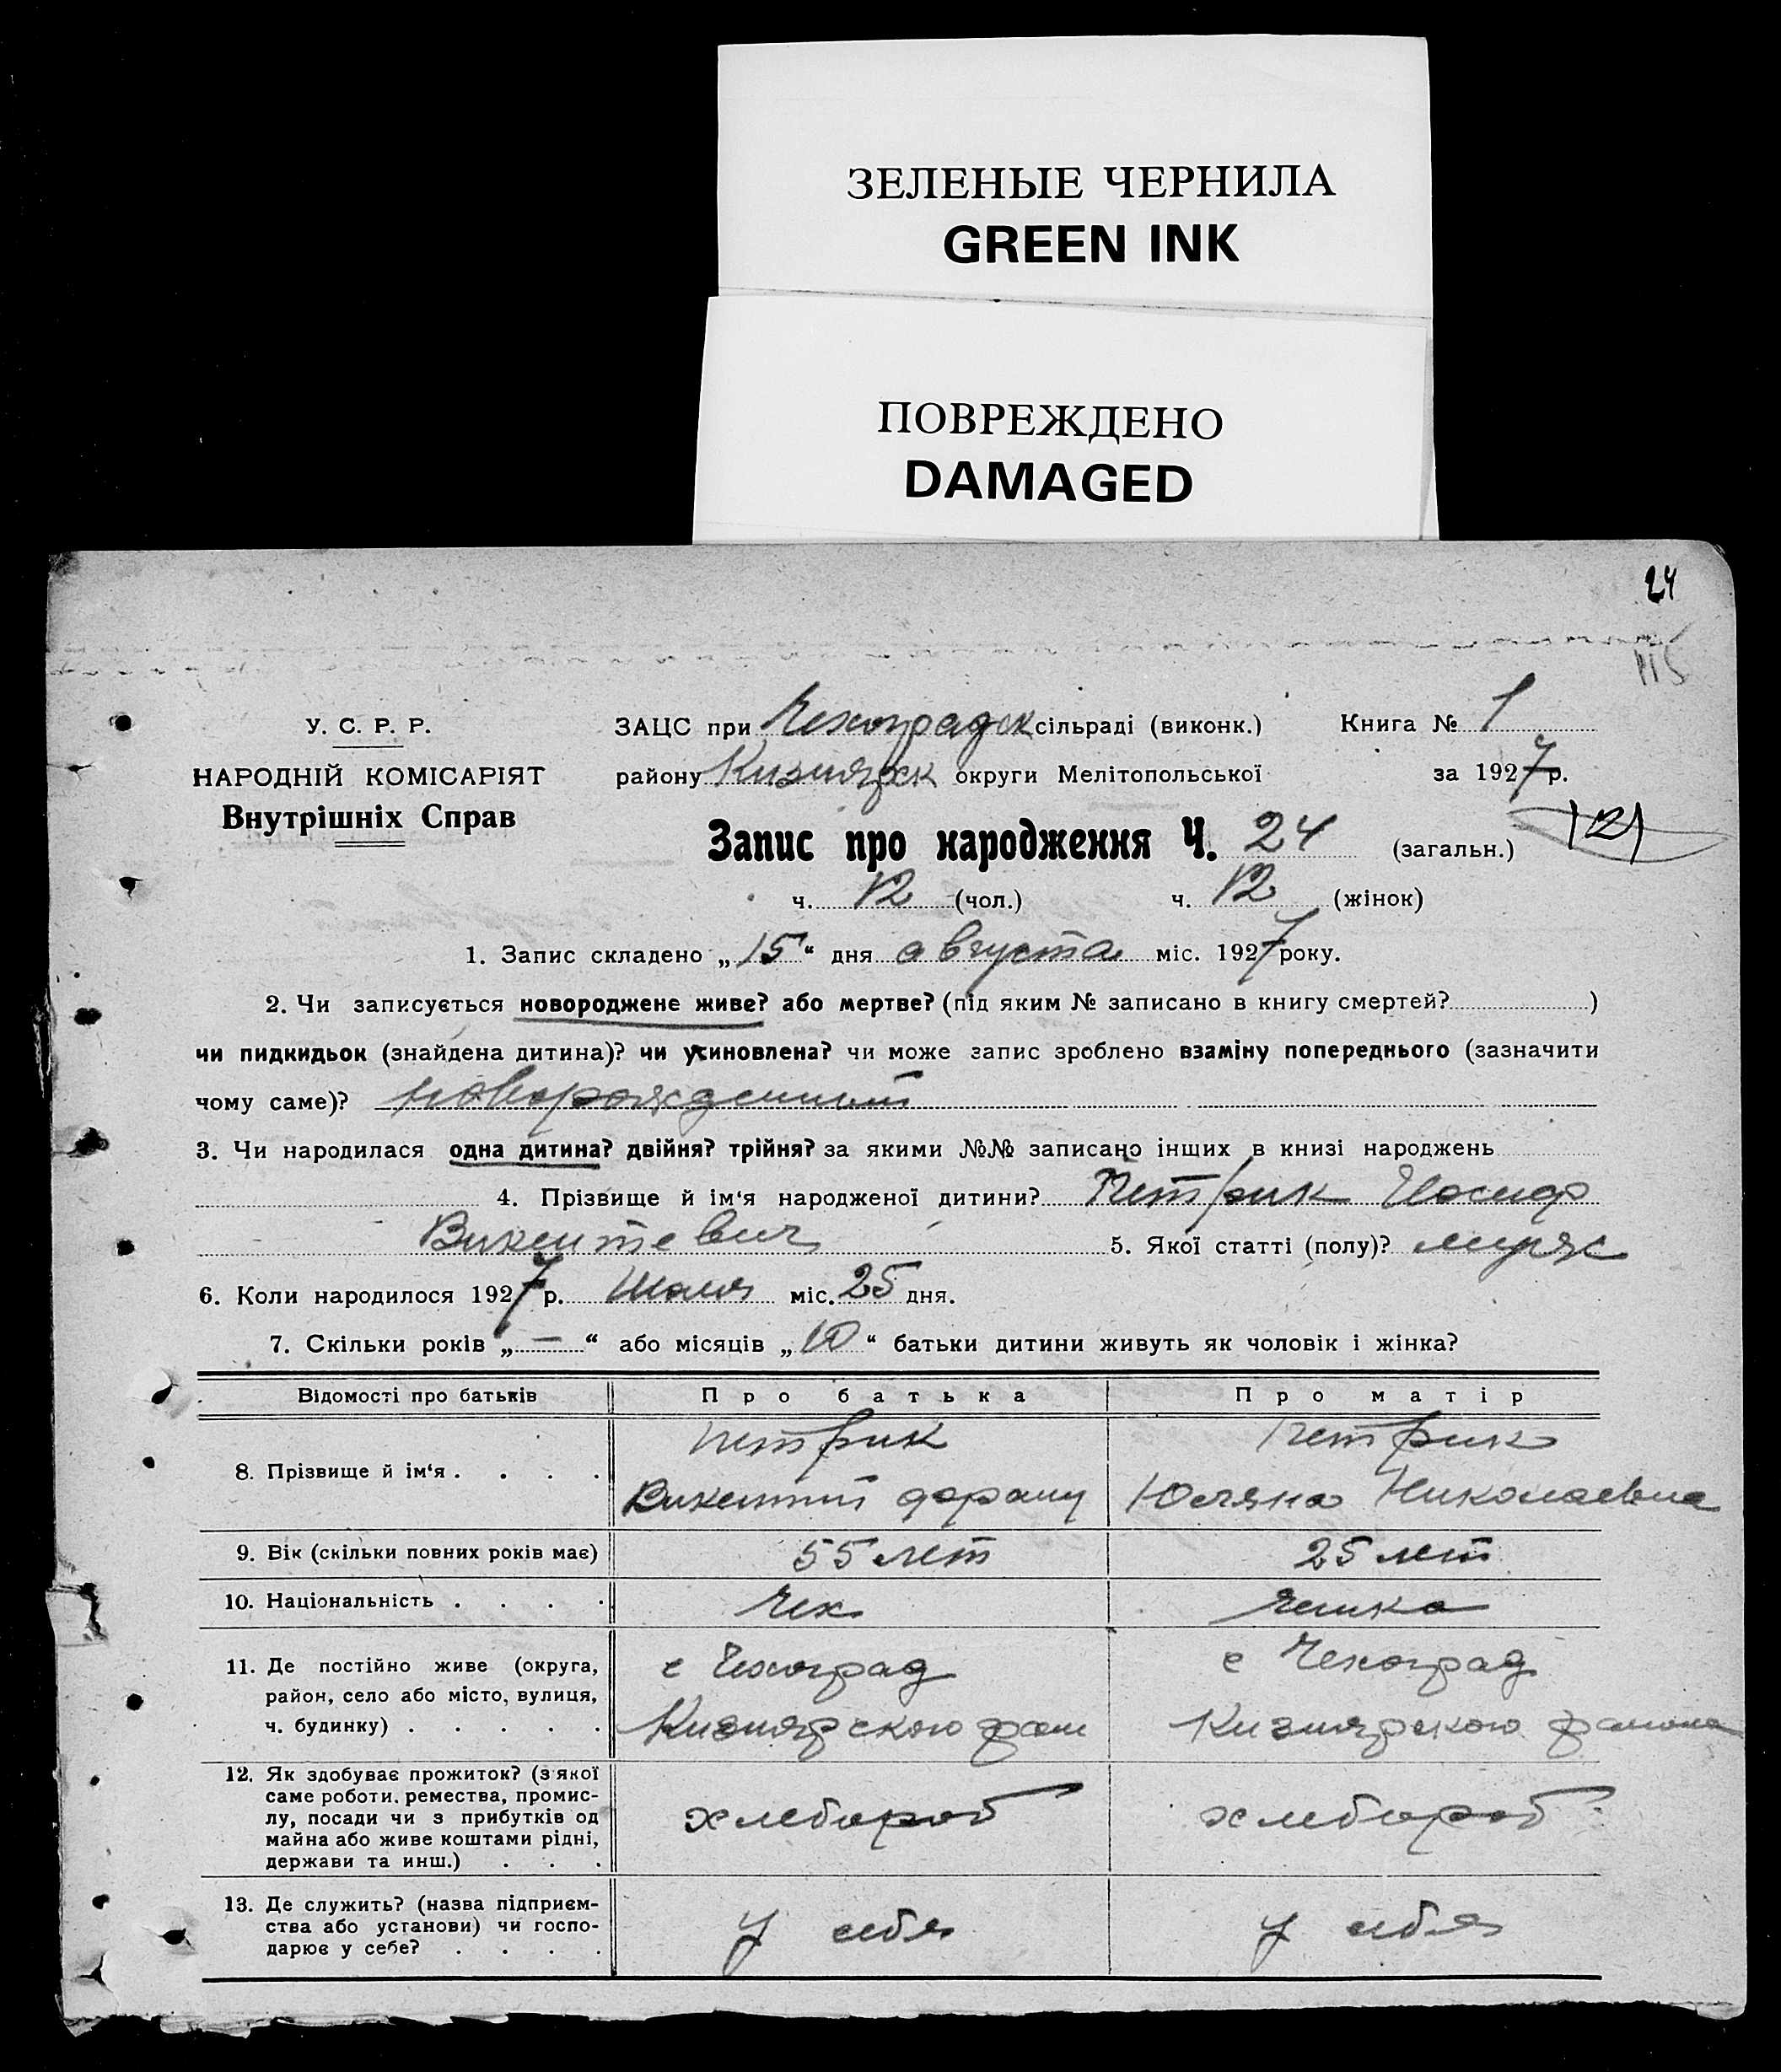 ЗЕЛЕНЫЕ ЧЕРНИЛА
GREEN INK
ПОВРЕЖДЕНО
DAMAGED
24
115
У. С. Р. Р.
НАРОДНІЙ КОМІСАРІЯТ
Внутрішніх Справ
ЗАЦС при Чехоградск сільраді (виконк.) Книга № 1
району Кизиярск округи Мелітопольської за 1927 р.
Запис про народження Ч. 24 (загальн.) 121
ч. 12 (чол.) ч. 12 (жінок)
1. Запис складено „15“ дня августа міс. 1927 року.
2. Чи записується новороджене живе? або мертве? (під яким № записано в книгу смертей? )
чи пидкидьок (знайдена дитина)? чи усиновлена? чи може запис зроблено взаміну попереднього (зазначити
чому саме)? новорожденный
3. Чи народилася одна дитина? двійня? трійня? за якими №№ записано інщих в книзі народжень
4. Прізвище й ім‘я народженої дитини? Петрик Иосиф
Викентевич 5. Якої статті (полу)? мужс
6. Коли народилося 1927 р. Июля міс. 25 дня.
7. Скільки років „ — “ або місяців „ 10 “ батьки дитини живуть як чоловік і жінка?
Відомості про батьків Про батька Про матір
8. Прізвище й ім‘я . . . . Петрик Петрик
Викентий Юляна Николаевна
9. Вік (скільки повних років має) 55 лет 25 лет
10. Національність . . . . Чех Чешка
11. Де постійно живе (округа, с Чехоград с Чехоград
район, село або місто, вулиця,
ч. будинку) . . . . . Кизиярского рай Кизиярского района
12. Як здобуває прожиток? (з якої
саме роботи. ремества, промис-
лу, посади чи з прибутків од хлебороб хлебороб
майна або живе коштами рідні,
держави та инш.) . . .
13. Де служить? (назва підприєм-
ства або установи) чи госпо- у себя у себя
дарює у себе? . . . .